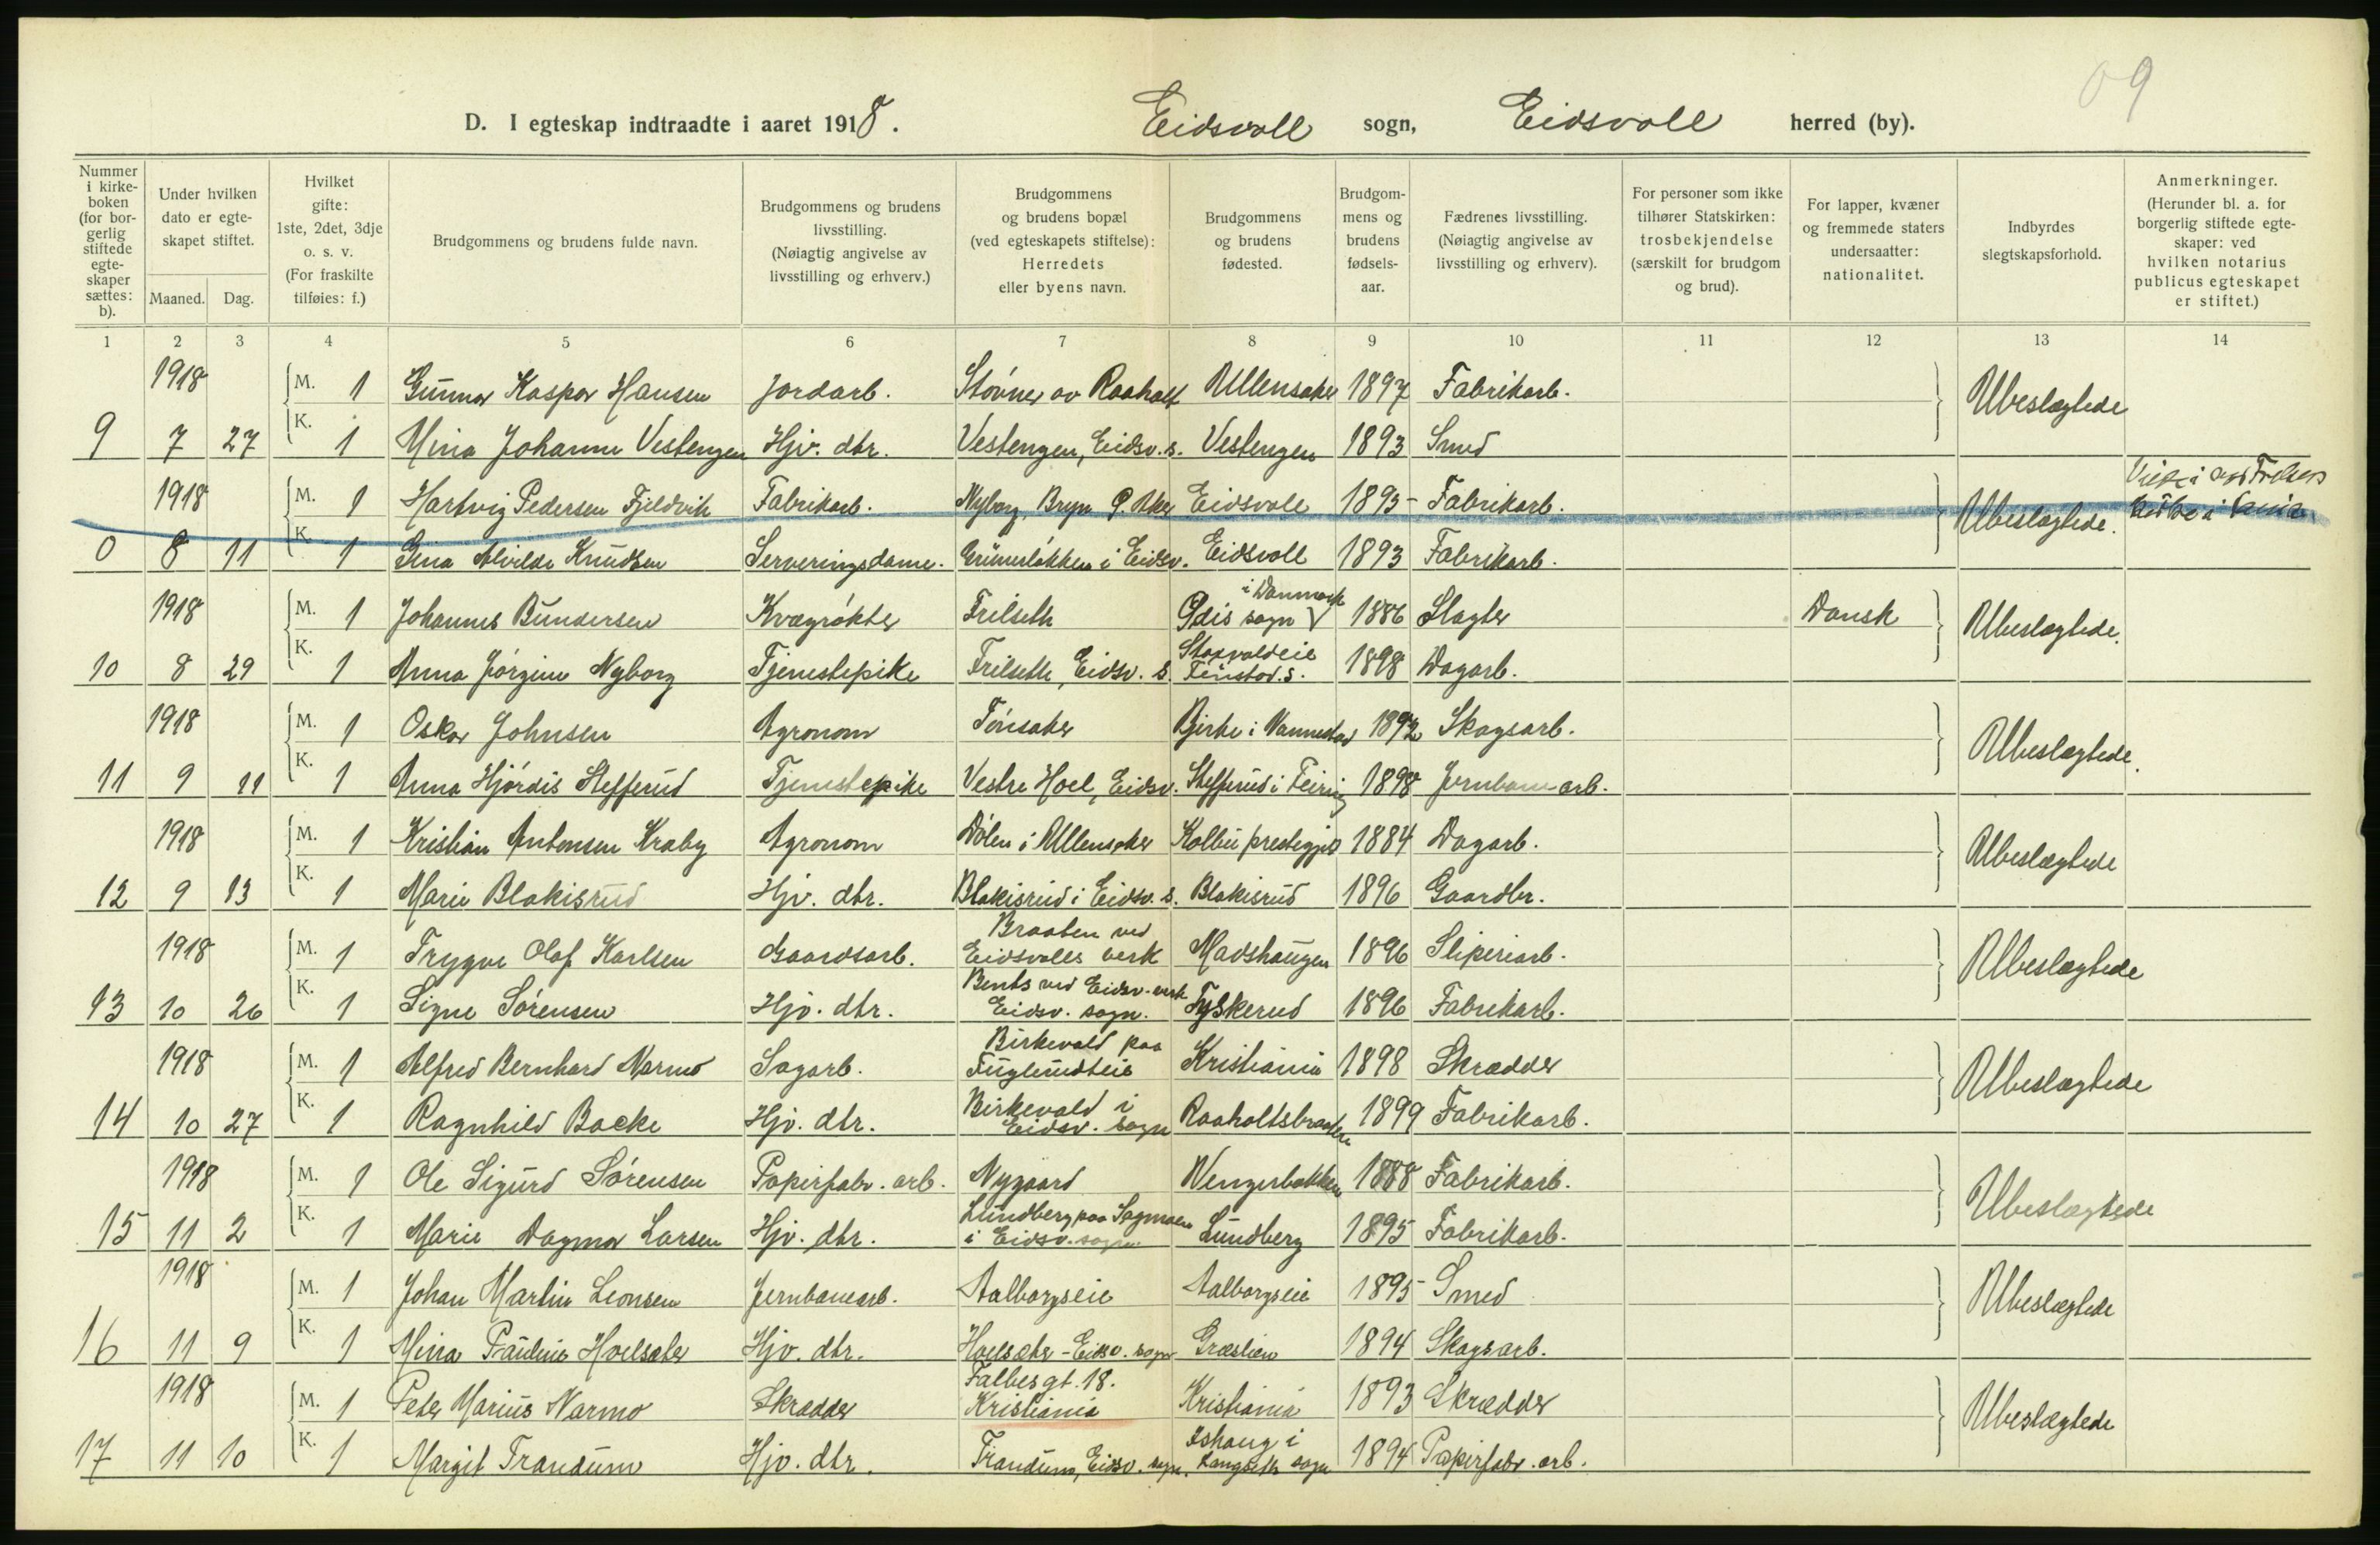 09
D. I egteskap indtraadte i aaret 1918. Eidsvoll sogn, Eidsvoll herred (by).
Nummer i kirkeboken (for borgerlig stiftede egteskaper sættes: b).
Under hvilken dato er egteskapet stiftet.
Maaned. Dag.
Hvilket gifte: 1ste, 2det, 3dje o. s. v. (For fraskilte tilføies: f.)
Brudgommens og brudens fulde navn.
Brudgommens og brudens livsstilling. (Nøiagtig angivelse av livsstilling og erhverv.)
Brudgommens og brudens bopæl (ved egteskapets stiftelse): Herredets eller byens navn.
Brudgommens og brudens fødested.
Brudgommens og brudens fødselsaar.
Fædrenes livsstilling. (Nøiagtig angivelse av livsstilling og erhverv).
For personer som ikke tilhører Statskirken: trosbekjendelse (særskilt for brudgom og brud).
For lapper, kvæner og fremmede staters undersaatter: nationalitet.
Indbyrdes slegtskapsforhold.
Anmerkninger. (Herunder bl. a. for borgerlig stiftede egteskaper: ved hvilken notarius publicus egteskapet er stiftet.)
1 2 3 4 5 6 7 8 9 10 11 12 13 14
1918 M. 1 Gunnar Kaspar Hansen Jordarb. Støvner av Raaholt Ullensaker 1897 Fabrikarb. Ubeslægtede
9 7 27 K. 1 Mina Johanne Vestengen Hjv. dtr. Vestengen, Eidsv. s. Vestengen 1893 Smed
1918 M. 1 Hartvig Pedersen Fjeldvik Fabrikarb. Nyborg, Bryn Ø. Aker Eidsvoll 1895 Fabrikarb. Ubeslægtede.
0 8 11 K. 1 Gina Alvilde Knudsen Serveringsdame. Grünerløkken i Eidsv. Eidsvoll 1893 Fabrikarb.
1918 M. 1 Johannes Bundersen Kvægrøkter Frilseth Ødis sogn i Danmark 1886 Slagter Dansk Ubeslægtede.
10 8 29 K. 1 Anna Jørgine Nyborg Tjenestepike Frilseth, Eidsv. s. Finstad. s. 1898 Dagarb.
1918 M. 1 Oskar Johnsen Agronom Tønsaker Birke i Nannestad 1892 Skogsarb. Ubeslægtede.
11 9 11 K. 1 Anna Hjørdis Stefferud Tjenestepike Vestre Hoel, Eidsv. Stefferud i Feiring 1898 Jernbanearb.
1918 M. 1 Kristian Antonsen Kraby Agronom Dølen i Ullensaker Kolbu prestegjeld 1884 Dagarb. Ubeslægtede
12 9 13 K. 1 Marie Blakisrud Hjv. dtr. Blakisrud i Eidsv. s. Blakisrud 1896 Gaardbr.
1918 M. 1 Trygve Olaf Karlsen Gaardsarb. Braaten ved Eidsvolls verk Madshaugen 1896 Sliperiarb. Ubeslægtede
13 10 26 K. 1 Signe Sørensen Hjv. dtr. Bents ved Eidsv. verk Eidsv. sogn. Tyskerud 1896 Fabrikarb.
1918 M. 1 Alfred Bernhard Narmo Sagarb. Birkevold paa Fuglerudteie Kristiania 1898 Skrædder Ubeslægtede
14 10 27 K. 1 Ragnhild Backe Hjv. dtr. Birkevold i Eidsv. sogn Raaholtsbraaten 1899 Fabrikarb.
1918 M. 1 Ole Sigurd Sørensen Papirfabr. arb. Nygaard Wengerbakken 1888 Fabrikarb. Ubeslægtede
15 11 2 K. 1 Marie Dagmar Larsen Hjv. dtr. Lundberg paa Sagmoen i Eidsv. sogn. Lundberg 1895 Fabrikarb.
1918 M. 1 Johan Martin Leonsen Jernbanearb. Aalborgseie Aalborgseie 1895 Smed Ubeslægtede
16 11 9 K. 1 Mina Pauline Hoelsæter Hjv. dtr. Hoelsæter - Eidsv. sogn Græslien 1894 Skogsarb.
1918 M. 1 Peter Marius Narmo Skrædder Falbes gt. 18. Kristiania Kristiania 1893 Skrædder Ubeslægtede
17 11 10 K. 1 Margit Trandum Hjv. dtr. Trandum, Eidsv. sogn. Ishaug i Langseth sogn 1894 Papirfabr. arb.